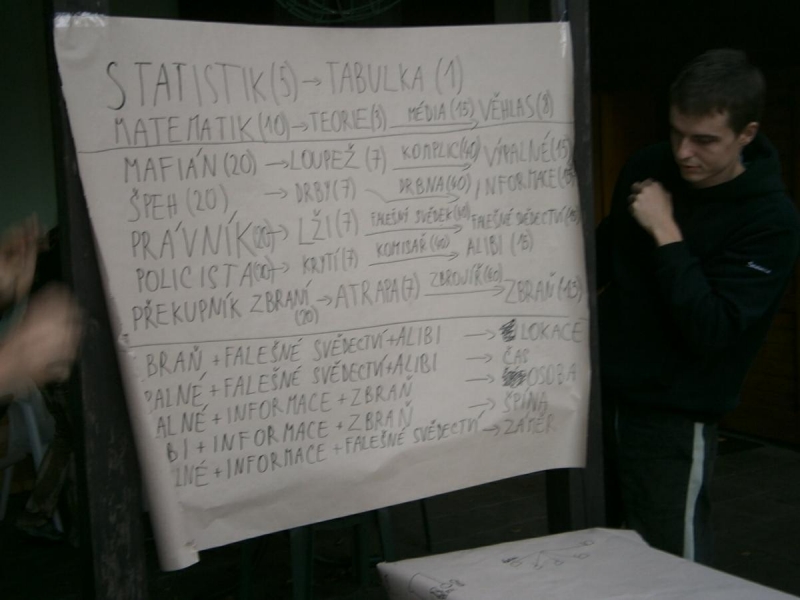 STATISTIK(5) → TABULKA (1)
MATEMATIK(10) → TEORIE(3) MÉDIA(15) → VĚHLAS(8)
MAFIÁN(20) → LOUPEŽ (7) KOMPLIC(40) → VÝPALNÉ(15)
ŠPEH (20) → DRBY(7) DRBNA(40) → INFORMACE(15
PRÁVNÍK(20) → LŽI (7) FALEŠNÝ SVĚDEK(40) → FALEŠNÉ SVĚDECTVÍ(15)
POLICISTA(20) → KRYTÍ(7) KOMISAŘ(40) → ALIBI (15)
PŘEKUPNÍK ZBRANÍ (20) → ATRAPA(7) ZBROJÍŘ(40) → ZBRAŇ(15)
BRAŇ + FALEŠNÉ SVĚDECTVÍ+ALIBI → LOKACE
PALNÉ + FALEŠNÉ SVĚDECTVÍ+ALIBI → ČAS
ALNÉ + INFORMACE + ZBRAŇ → OSOBA
BI + INFORMACE + ZBRAŇ → ŠPÍNA
LNÉ + INFORMACE + FALEŠNÉ SVĚDECTVÍ → ZÁMĚR